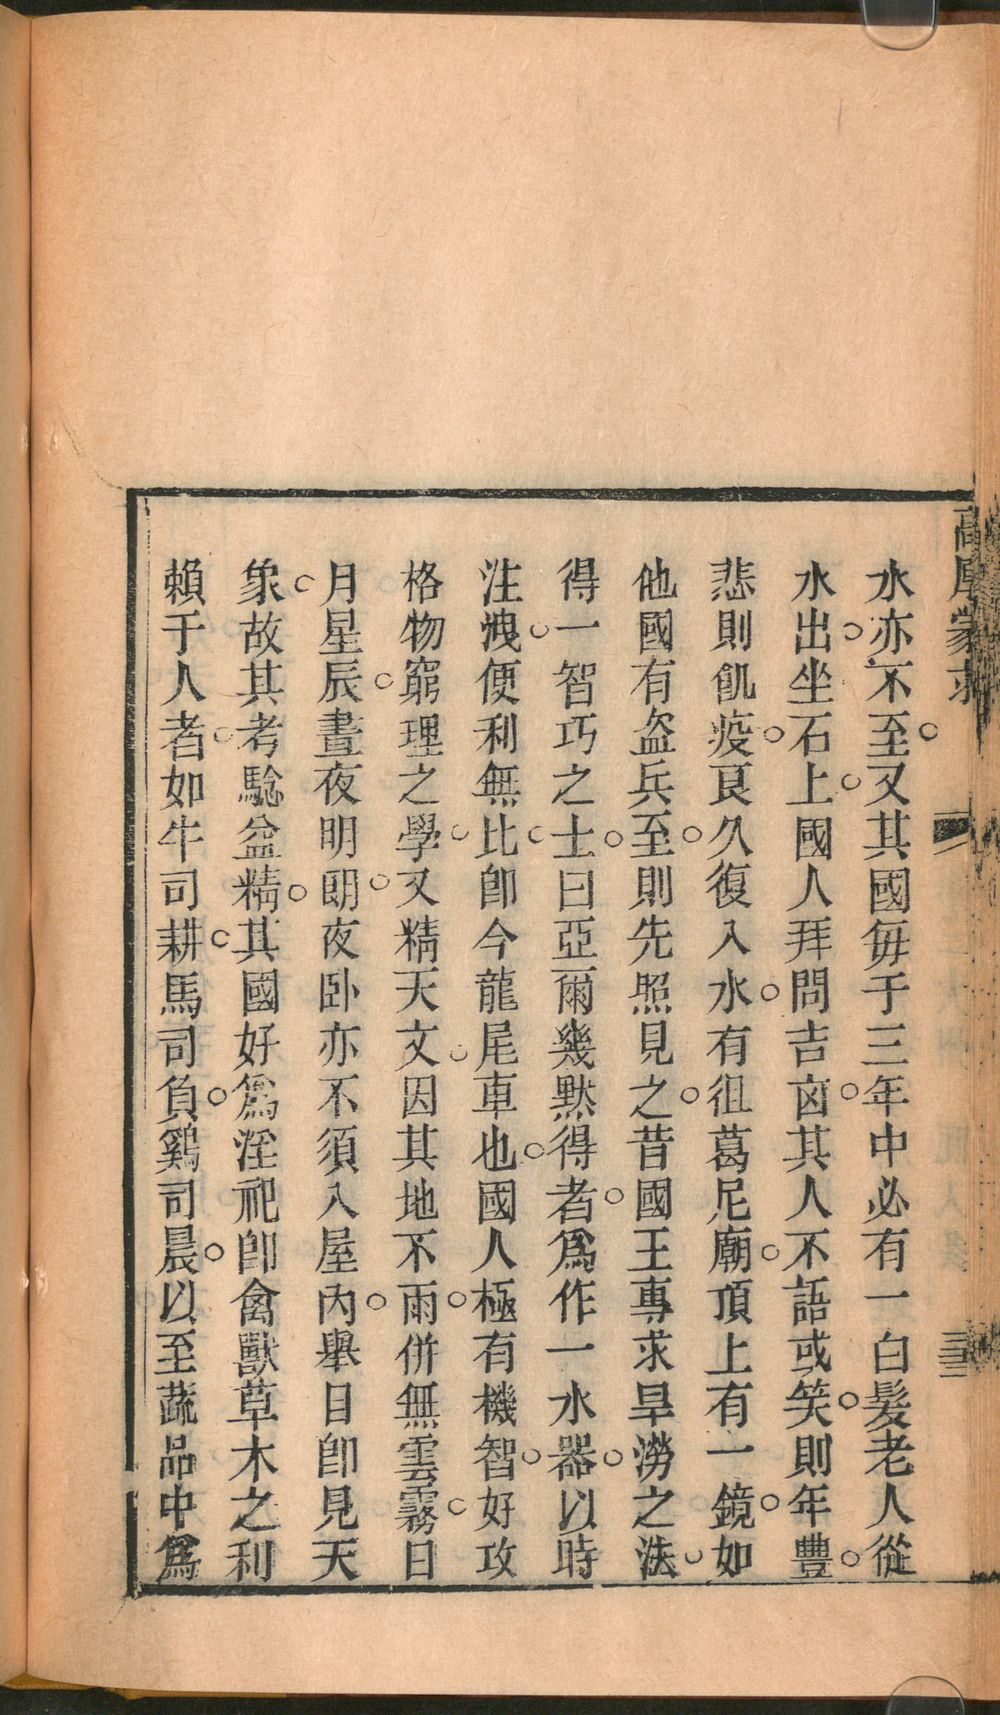 高厚蒙求
三
水亦不至又其國每于三年中必有一白髮老人從
水出坐石上國人拜問吉凶其人不語或笑則年豐
悲則飢疫良久復入水有徂葛尼廟頂上有一鏡如
他國有盜兵至則先照見之昔國王專求旱澇之法
得一智巧之士曰亞爾幾默得者爲作一水器以時
注洩便利無比卽今龍尾車也國人極有機智好攻
格物窮理之學又精天文因其地不雨併無雲霧日
月星辰晝夜明朗夜卧亦不須入屋內舉目卽見天
象故其考騐益精其國好爲淫祀卽禽獸草木之利
賴于人者如牛司耕馬司負鷄司晨以至蔬品中爲